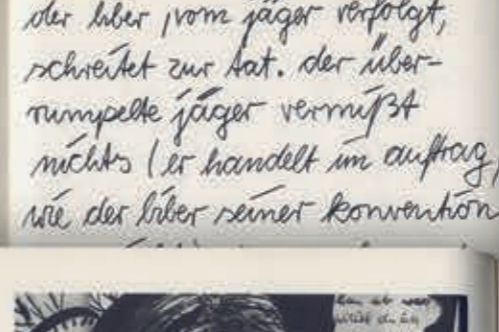 der biber , vom jäger verfolgt,
schreitet zur tat. der über-
rumpelte jäger vermißt
nichts (er handelt im auftrag,
wie der biber seiner konvention